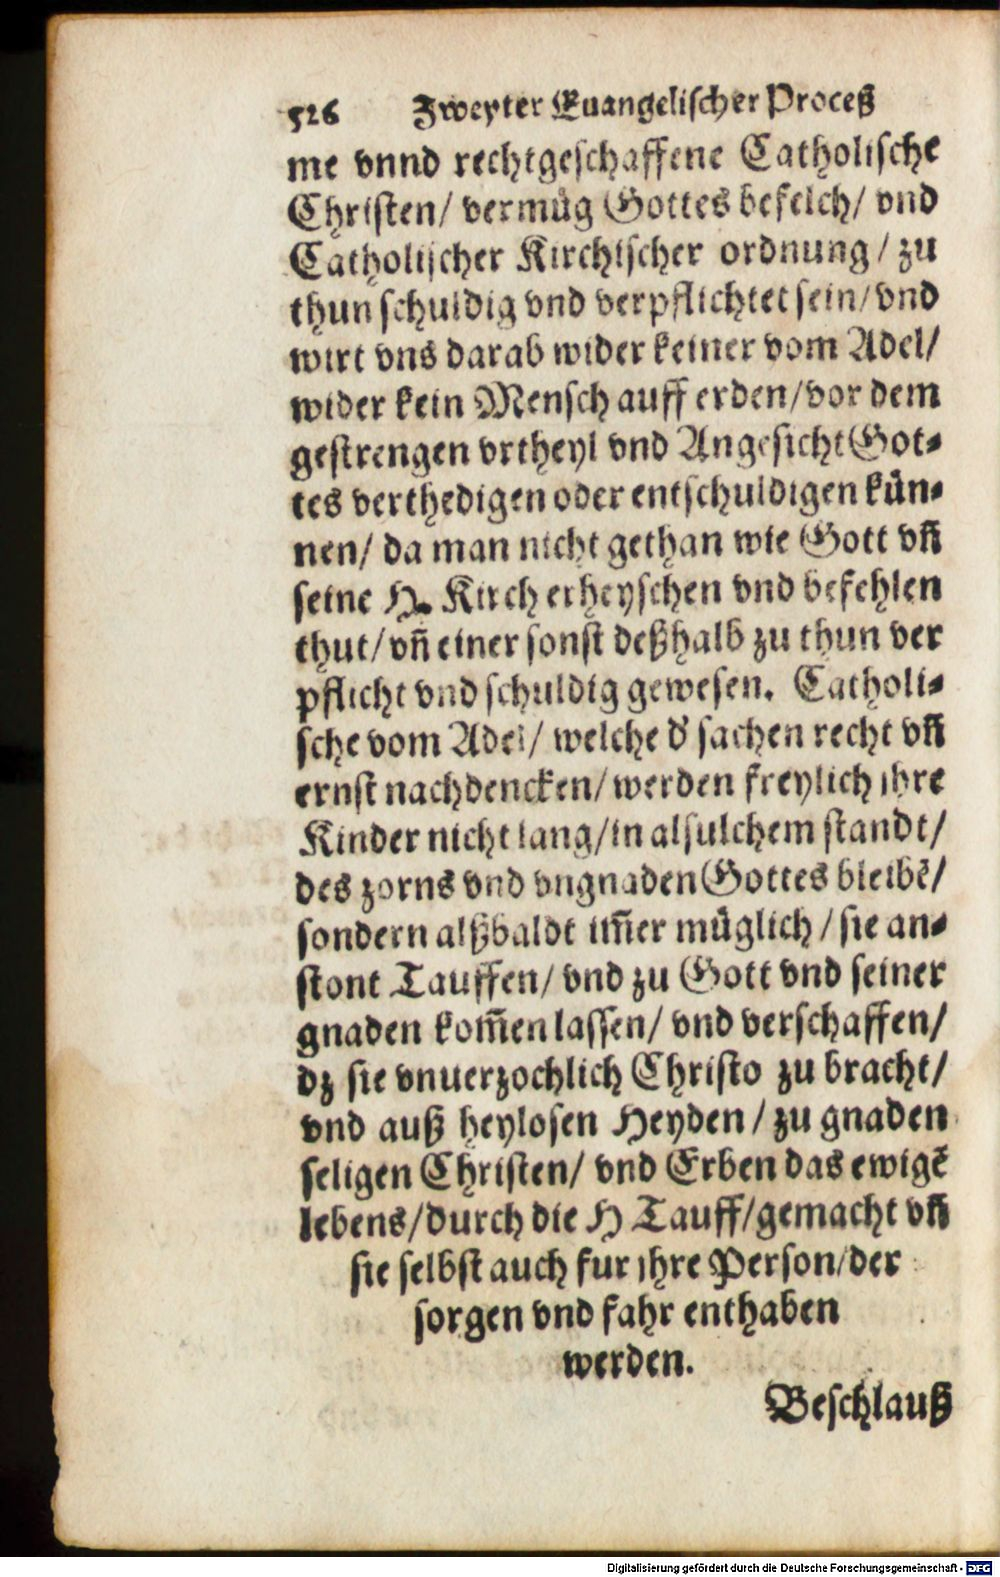 526 Zweyter Euangelischer Proceß
me vnnd rechtgeschaffene Catholische
Christen/ vermüg Gottes befelch/ vnd
Catholischer Kirchischer ordnung/ zu
thun schuldig vnd verpflichtet sein/ vnd
wirt vns darab wider keiner vom Adel/
wider kein Mensch auff erden/ vor dem
gestrengen vrtheyl vnd Angesicht Got⸗
tes verthedigen oder entschuldigen kün⸗
nen/ da man nicht gethan wie Gott vñ
seine H. Kirch erheyschen vnd befehlen
thut/ vñ einer sonst deßhalb zu thun ver
pflicht vnd schuldig gewesen. Catholi⸗
sche vom Adel/ welche d' sachen recht vñ
ernst nachdencken/ werden freylich ihre
Kinder nicht lang/ in alsulchem standt/
des zorns vnd vngnaden Gottes bleibẽ/
sondern alßbaldt im̃er müglich/ sie an⸗
stont Tauffen/ vnd zu Gott vnd seiner
gnaden kom̃en lassen/ vnd verschaffen/
dz sie vnuerzochlich Christo zu bracht/
vnd auß heylosen Heyden/ zu gnaden
seligen Christen/ vnd Erben das ewigẽ
lebens/ durch die H Tauff/ gemacht vñ
sie selbst auch fur ihre Person/ der
sorgen vnd fahr enthaben
werden.
Beschlauß
Digitalisierung gefördert durch die Deutsche Forschungsgemeinschaft - DFG